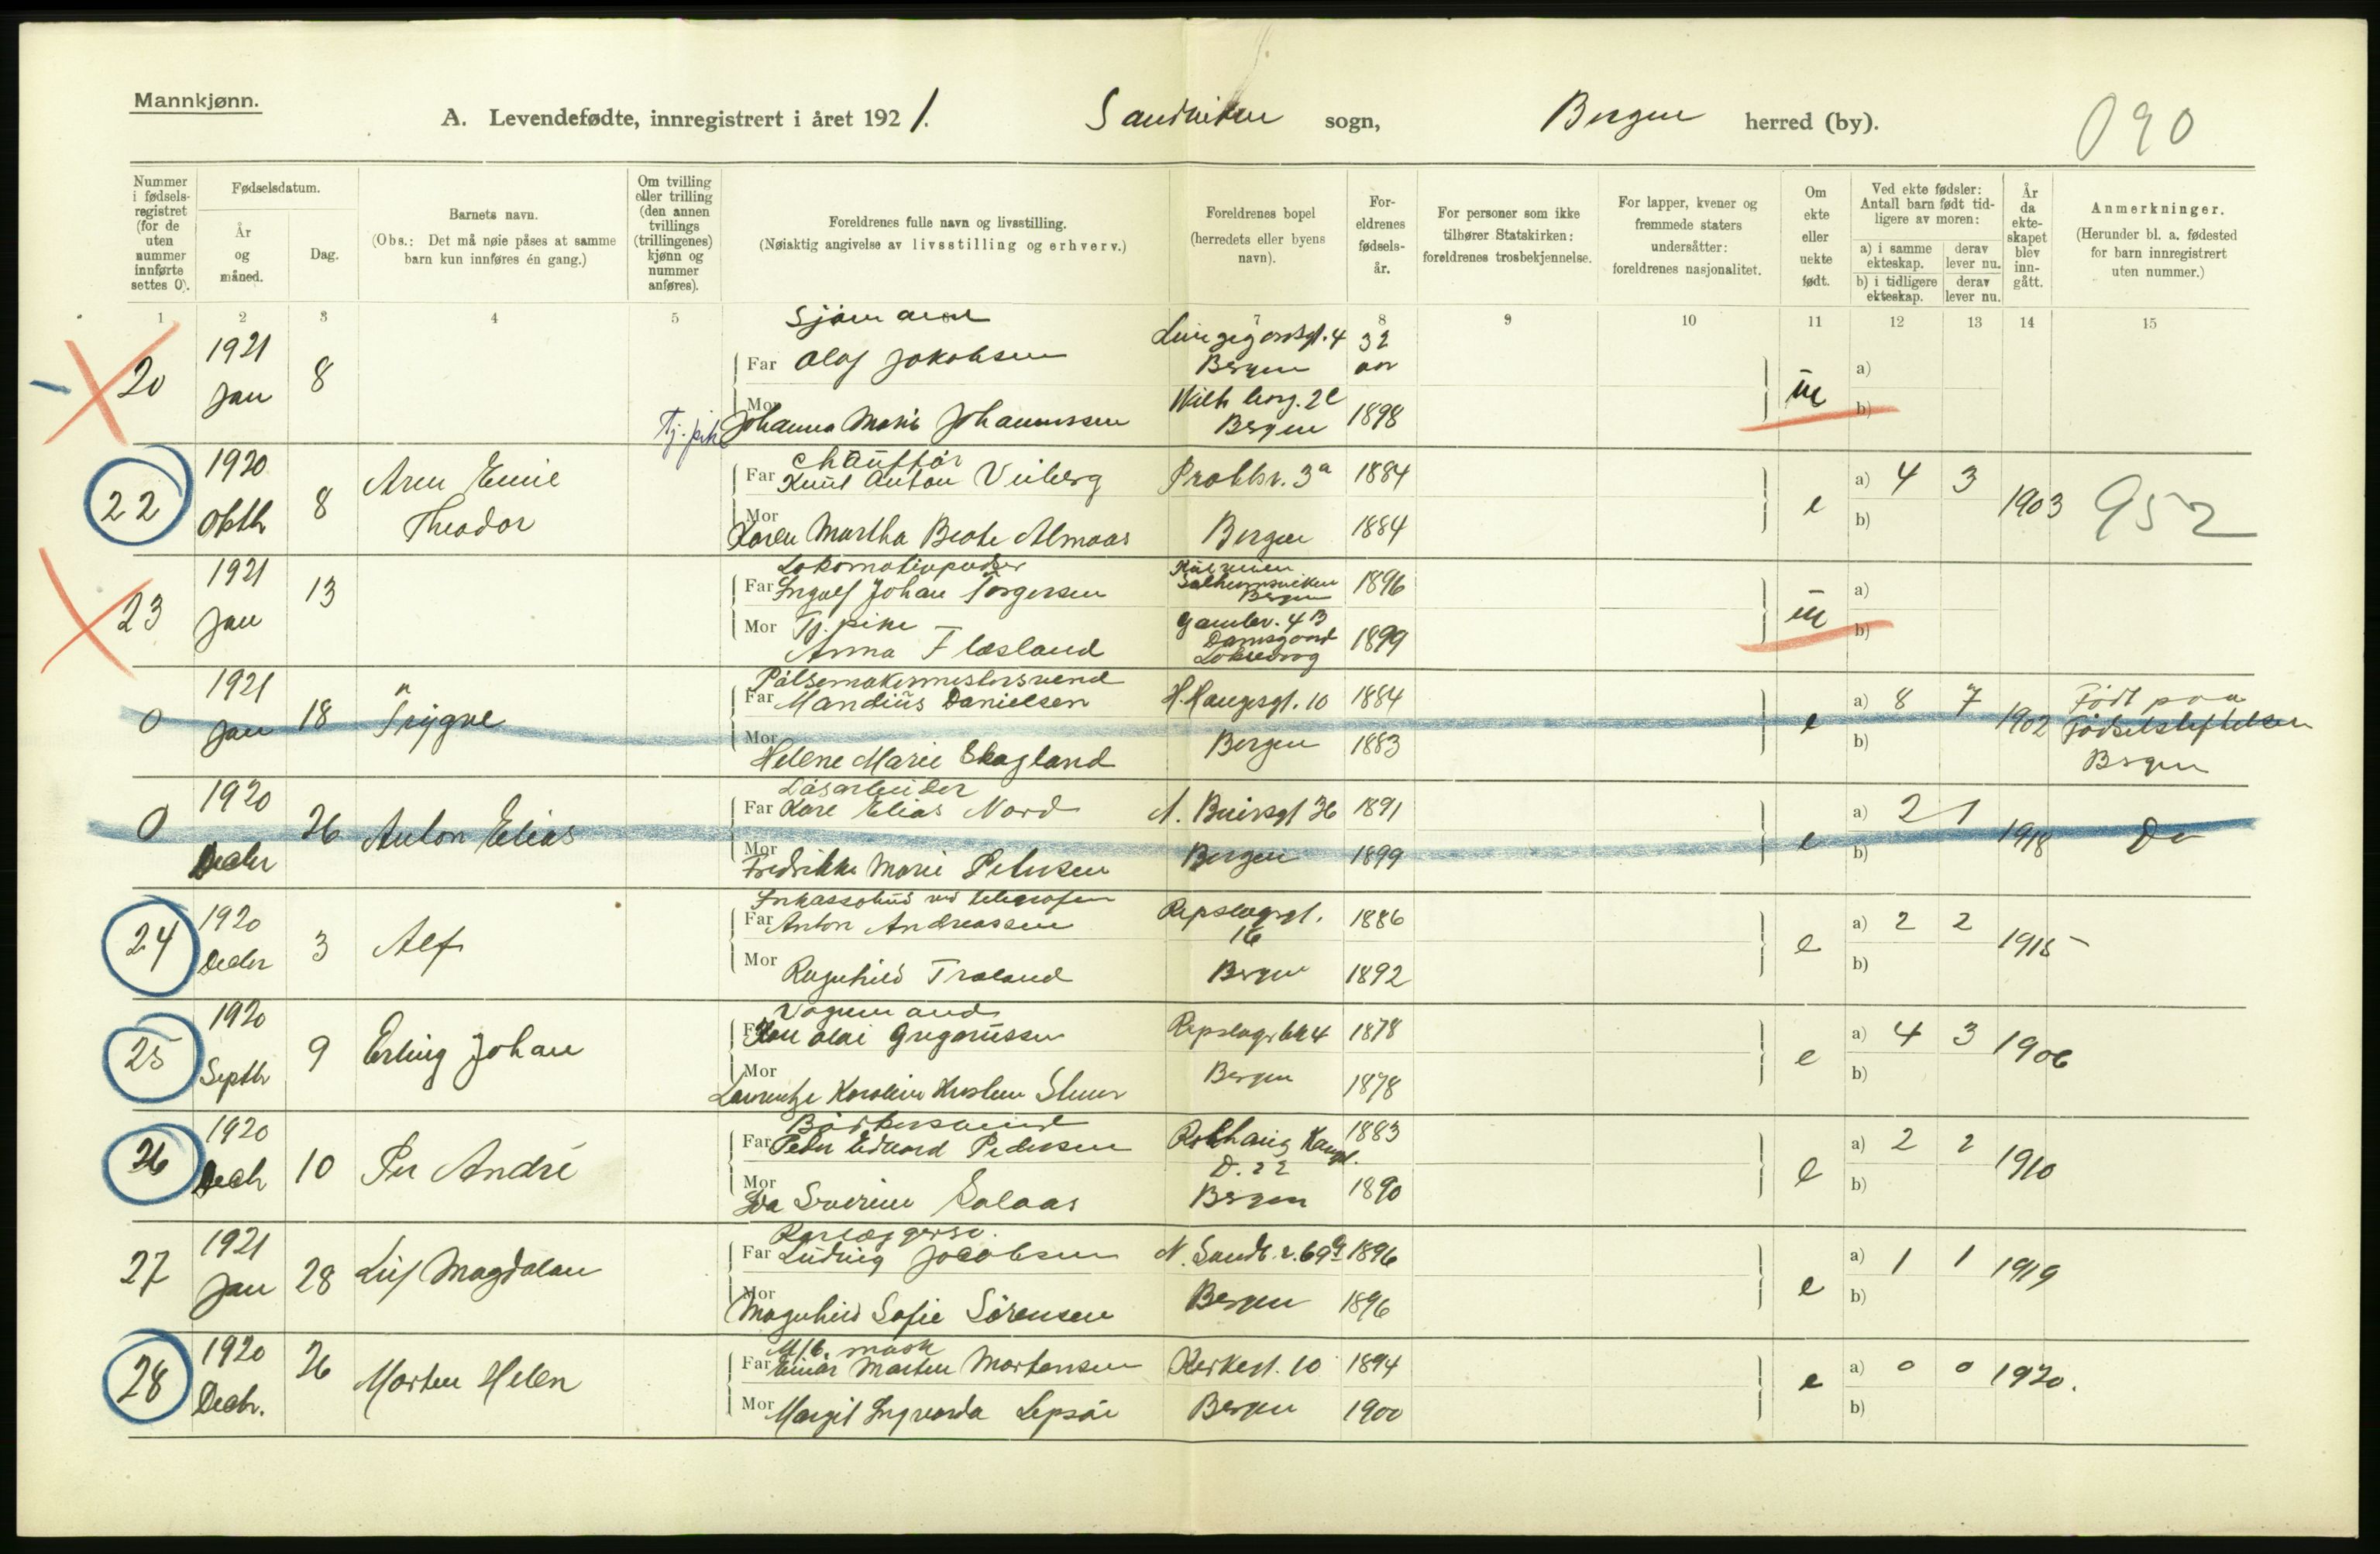 Mannkjønn.
A. Levendefødte, innregistrert i året 1921. Sandviken sogn, Bergen herred (by). 090
Nummer i fødselsregistret (for de uten nummer innførte settes 0).
Fødselsdatum.
År og måned.
Dag.
Barnets navn.
(Obs.: Det må nøie påses at samme barn kun innføres én gang.)
Om tvilling eller trilling (den annen tvillings (trillingenes) kjønn og nummer anføres).
Foreldrenes fulle navn og livsstilling.
(Nøiaktig angivelse av livsstilling og erhverv.)
Foreldrenes bopel (herredets eller byens navn).
Foreldrenes fødselsår.
For personer som ikke tilhører Statskirken: foreldrenes trosbekjennelse.
For lapper, kvener og fremmede staters undersåtter: foreldrenes nasjonalitet.
Om ekte eller uekte født.
Ved ekte fødsler: Antall barn født tidligere av moren:
a) i samme ekteskap.
derav lever nu.
b) i tidligere ekteskap.
derav lever nu.
År da ekteskapet blev inngått.
Anmerkninger.
(Herunder bl. a. fødested for barn innregistrert uten nummer.)
1 2 3 4 5 7 8 9 10 11 12 13 14 15
Sjømann
20 1921 Jan 8 Far Olaf Jakobsen Bergen 32 aar a)
Tj. pike Mor Johanna Marie Johannessen Bergen 1898 b)
Chauffør
22 1920 Oktb 8 Arne Emil Theodor Far Knut Anton Viberg 3a 1884 e a) 4 3 1903 952
Mor Karen Martha Beate Almaas Bergen 1884 b)
Lokomotivpudser
23 1921 Jan 13 Far Ingolf Johan Torgersen Solheimsviken Bergen 1896 a)
Mor Tj. pike Anna Flesland Gamlev. 4 B Damsgaard Laksevaag 1899 b)
Pølsemakermestersvend
0 1921 Jan 18 Trygve Far Mandius Danielsen H. Haugesgt. 10 1884 e a) 8 7 1902 Født paa Fødselsstiftelsen Bergen
Mor Helene Marie Skagland Bergen 1883 b)
Løsarbeider
0 1920 Decbr 26 Anton Elias Far Kare Elias Nord 36 1891 e a) 2 1 1918 Do
Mor Fredrikke Marie Petersen Bergen 1899 b)
Inkassobud ved telegrafen
24 1920 Decbr 3 Alf Far Anton Andreassen Repslagergt. 16 1886 e a) 2 2 1915
Mor Ragnhild Træland Bergen 1892 b)
Vognmand
25 1920 Septb 9 Erling Johan Far Olai Gregoriussen 1878 e a) 4 3 1906
Mor Bergen 1878 b)
Bødkersvend
26 1920 Decb 10 Per André Far Peder Edvard Pedersen D. 22 1883 e a) 2 2 1910
Mor Severine Bergen 1890 b)
27 1921 Jan 28 Leif Magdalon Far Ludvig Jacobsen 1896 e a) 1 1 1919
Mor Magnhild Sofie Sørensen Bergen 1896 b)
28 1920 Decbr. 26 Morten Helen Far Einar Marten Mortensen Kirkegt. 10 1894 e a) 0 0 1920.
Mor Margit Ingvarda Lepsøe Bergen 1900 b)